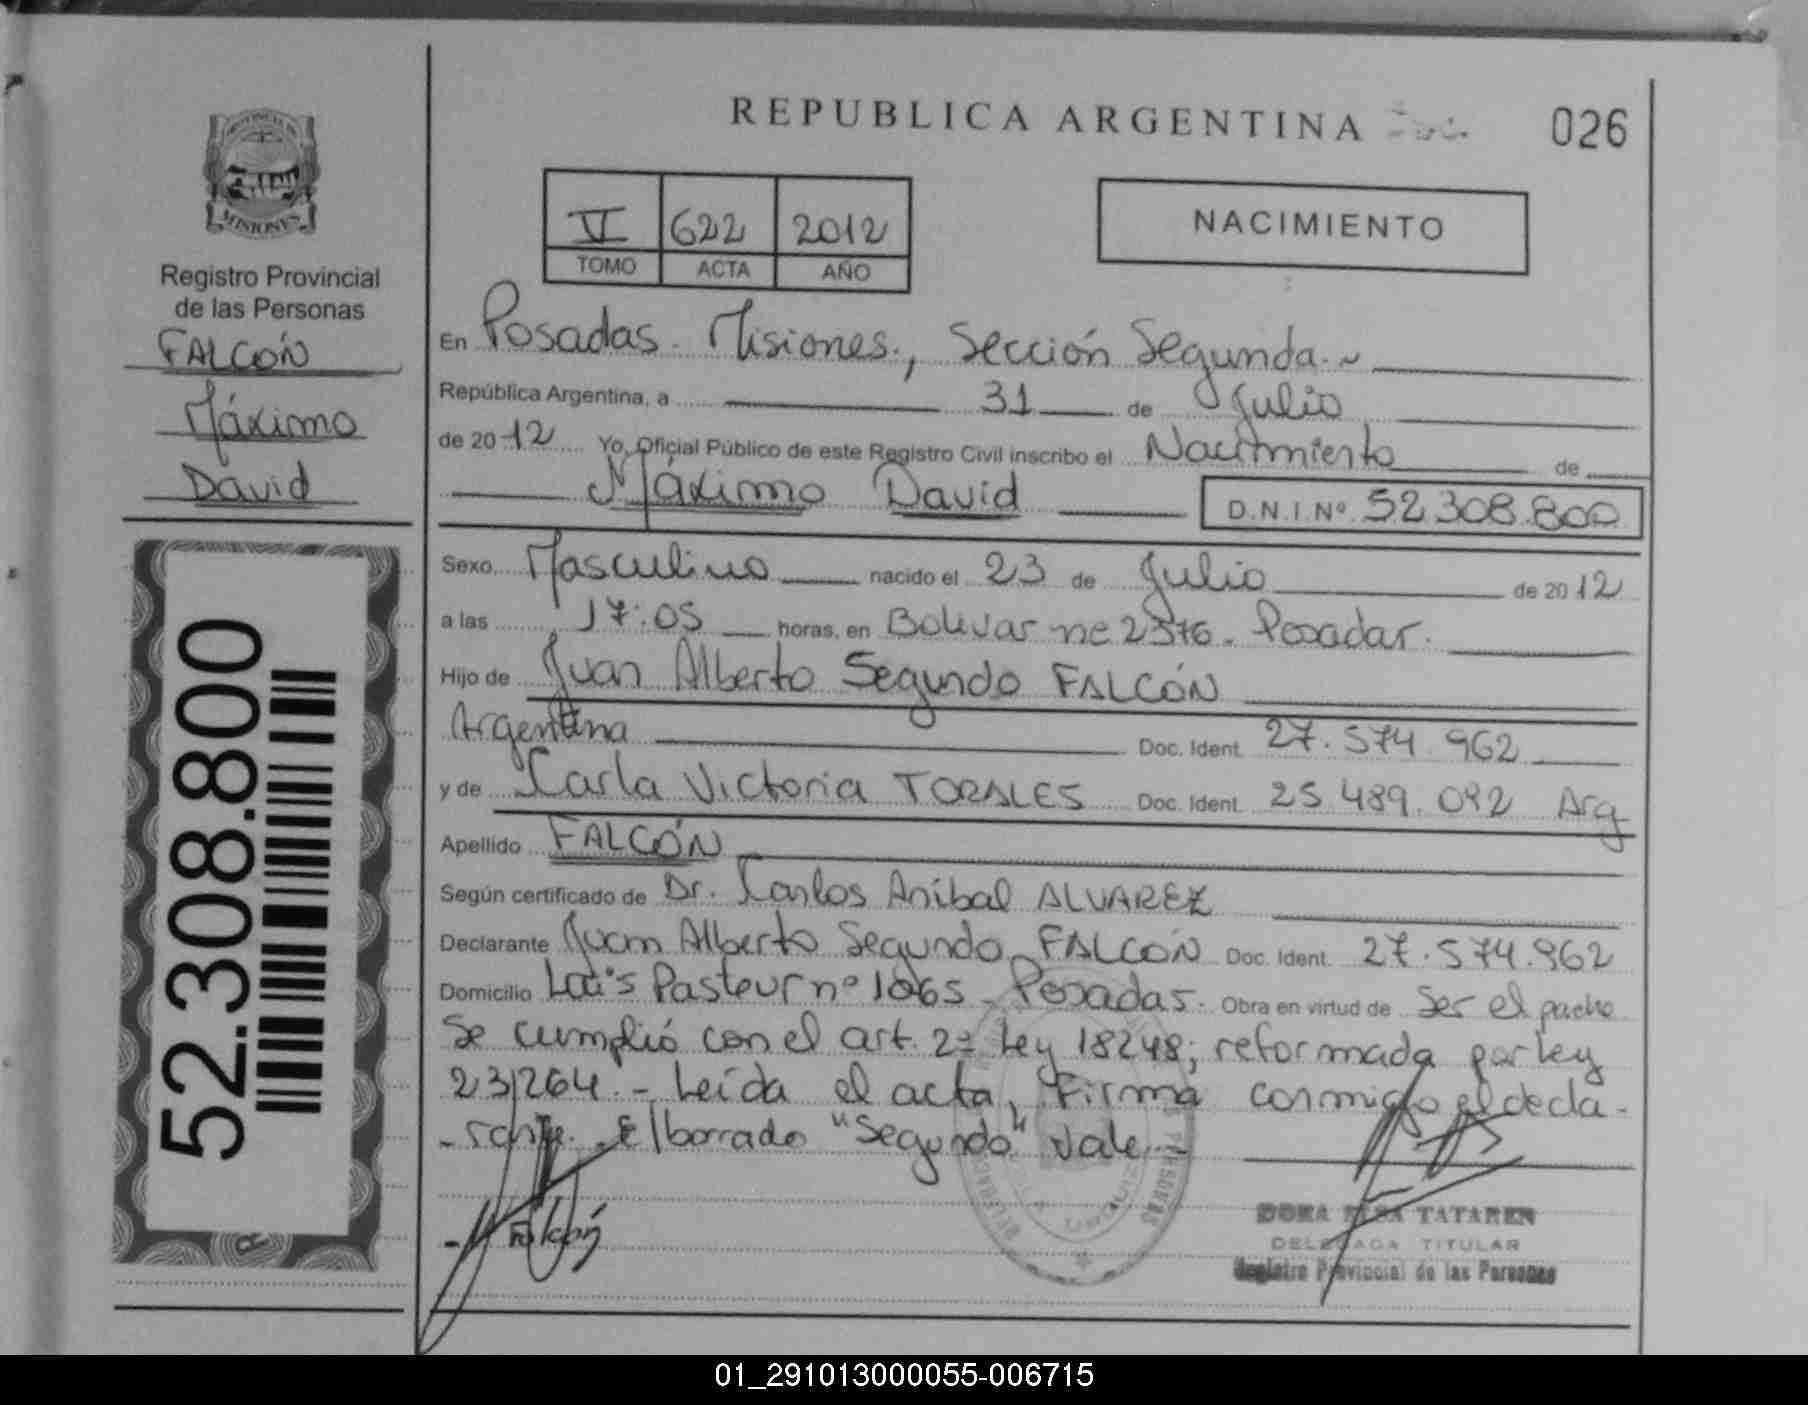 REPUBLICA ARGENTINA
026
PROVINCIA DE
MISIONES
Registro Provincial
de las Personas
FALCÓN
Máximo
David
52.308.800
VI 622 2012
TOMO ACTA AÑO
NACIMIENTO
En Posadas. Misiones., Sección Segunda.~
República Argentina, a 31 de Julio
de 2012 Yo, Oficial Público de este Registro Civil inscribo el Nacimiento de
Máximo David D.N.I.Nº 52.308.800
Sexo Masculino nacido el 23 de Julio de 2012
a las 17:05 horas, en Bolivar nº 2376. Posadas.
Hijo de Juan Alberto Segundo FALCÓN
Argentina Doc. Ident. 27.574.962
y de Carla Victoria TORALES Doc. Ident. 25.489.092 Arg
Apellido FALCÓN
Según certificado de Dr. Carlos Aníbal ALVAREZ
Declarante Juan Alberto Segundo FALCÓN Doc. Ident. 27.574.962
Domicilio Luis Pasteur nº 1065 - Posadas. Obra en virtud de Ser el padre
Se cumplió con el art. 2º Ley 18248; reformada por ley
23264.- Leída el acta, Firma conmigo el decla-
-rante. El borrado "Segundo" Vale.-
Falcón
DORA ELSA TATAREN
DELEGADA TITULAR
Registro Provincial de las Personas
01_291013000055-006715